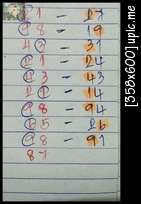 1 - 27
8 - 19
42 - 31
1 - 24
3 - 43
21 - 14
8 - 94
5 - 26
8 - 91
87
[358x600] upic.me